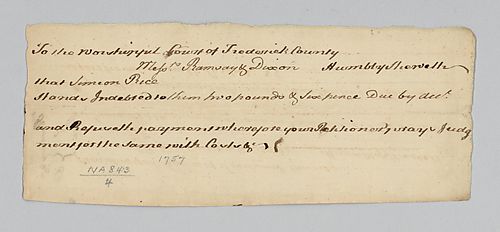 To the Worshipful Court of Frederick County
Messrs. Ramsay & Dixon Humbly Sheweth
that Simeon Rice
Stands Indebted to them two pounds & Six pence Due by
and Refuseth payment wherefore your Petitioners prays Judg
ment for the same with Costs &c
1757
NA 843
4